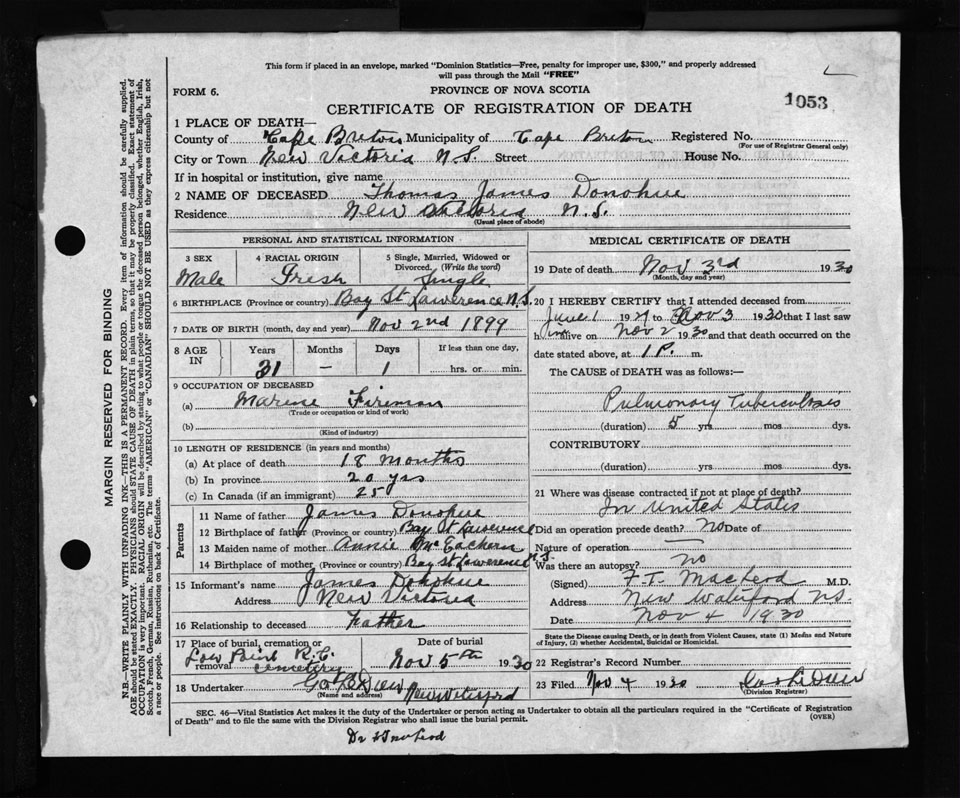 This form if placed in an envelope, marked "Dominion Statistics—Free, penalty for improper use, $300," and properly addressed
will pass through the Mail "FREE"
FORM 6.
PROVINCE OF NOVA SCOTIA
1053
CERTIFICATE OF REGISTRATION OF DEATH
1 PLACE OF DEATH—
County of Cape Breton Municipality of Cape Breton Registered No.
(For use of Registrar General only)
City or Town New Victoria N.S. Street House No.
If in hospital or institution, give name
2 NAME OF DECEASED Thomas James Donohue
Residence New Victoria N.S.
(Usual place of abode)
PERSONAL AND STATISTICAL INFORMATION
3 SEX 4 RACIAL ORIGIN 5 Single, Married, Widowed or
Divorced. (Write the word)
Male Irish Single
6 BIRTHPLACE (Province or country) Bay St Lawerence N.S.
7 DATE OF BIRTH (month, day and year) Nov 2nd 1899
8 AGE IN Years Months Days If less than one day,
31 - 1 hrs. or min.
9 OCCUPATION OF DECEASED
(a) Marine Fireman
(Trade or occupation or kind of work)
(b)
(Kind of industry)
10 LENGTH OF RESIDENCE (in years and months)
(a) At place of death 18 months
(b) In province 20 yrs
(c) In Canada (if an immigrant) 25
Parents
11 Name of father James Donohue
12 Birthplace of father (Province or country) Bay St Lawerence
13 Maiden name of mother Annie McEachern
14 Birthplace of mother (Province or country) Bay St Lawerence N.S.
15 Informant's name James Donohue
Address New Victoria
16 Relationship to deceased Father
17 Place of burial, cremation or Date of burial
removal Low Point R.C. Cemetery Nov 5th 1930
18 Undertaker New Waterford
(Name and address)
MEDICAL CERTIFICATE OF DEATH
19 Date of death Nov 3rd 1930
(Month, day and year)
20 I HEREBY CERTIFY that I attended deceased from
June 1 19 to Nov 3 1930 that I last saw
h im alive on Nov 2 1930 and that death occurred on the
date stated above, at 1 P. m.
The CAUSE of DEATH was as follows:—
Pulmonary Tuberculosis
(duration) 5 yrs mos dys.
CONTRIBUTORY
(duration) yrs. mos. dys.
21 Where was disease contracted if not at place of death?
In United States
Did an operation precede death? No Date of
Nature of operation —
Was there an autopsy? no
(Signed) F.T. MacLeod M.D.
Address New Waterford N.S.
Date Nov 4 1930
State the Disease causing Death, or in death from Violent Causes, state (1) Means and Nature
of Injury, (2) whether Accidental, Suicidal or Homicidal.
22 Registrar's Record Number
23 Filed Nov 4 1930
(Division Registrar)
SEC. 46—Vital Statistics Act makes it the duty of the Undertaker or person acting as Undertaker to obtain all the particulars required in the "Certificate of Registration
of Death" and to file the same with the Division Registrar who shall issue the burial permit.
(OVER)
MARGIN RESERVED FOR BINDING
N.B.—WRITE PLAINLY WITH UNFADING INK—THIS IS A PERMANENT RECORD. Every item of information should be carefully supplied.
AGE should be stated EXACTLY. PHYSICIANS should STATE CAUSE OF DEATH in plain terms, so that it may be properly classified. Exact statement of
OCCUPATION is very important. RACIAL ORIGIN will be described by stating to what people or tongue the deceased person belonged, whether English, Irish,
Scotch, French, German, Russian, Ruthenian, etc. The terms "AMERICAN" or "CANADIAN" SHOULD NOT BE USED as they express citizenship but not
a race or people. See instructions on back of Certificate.